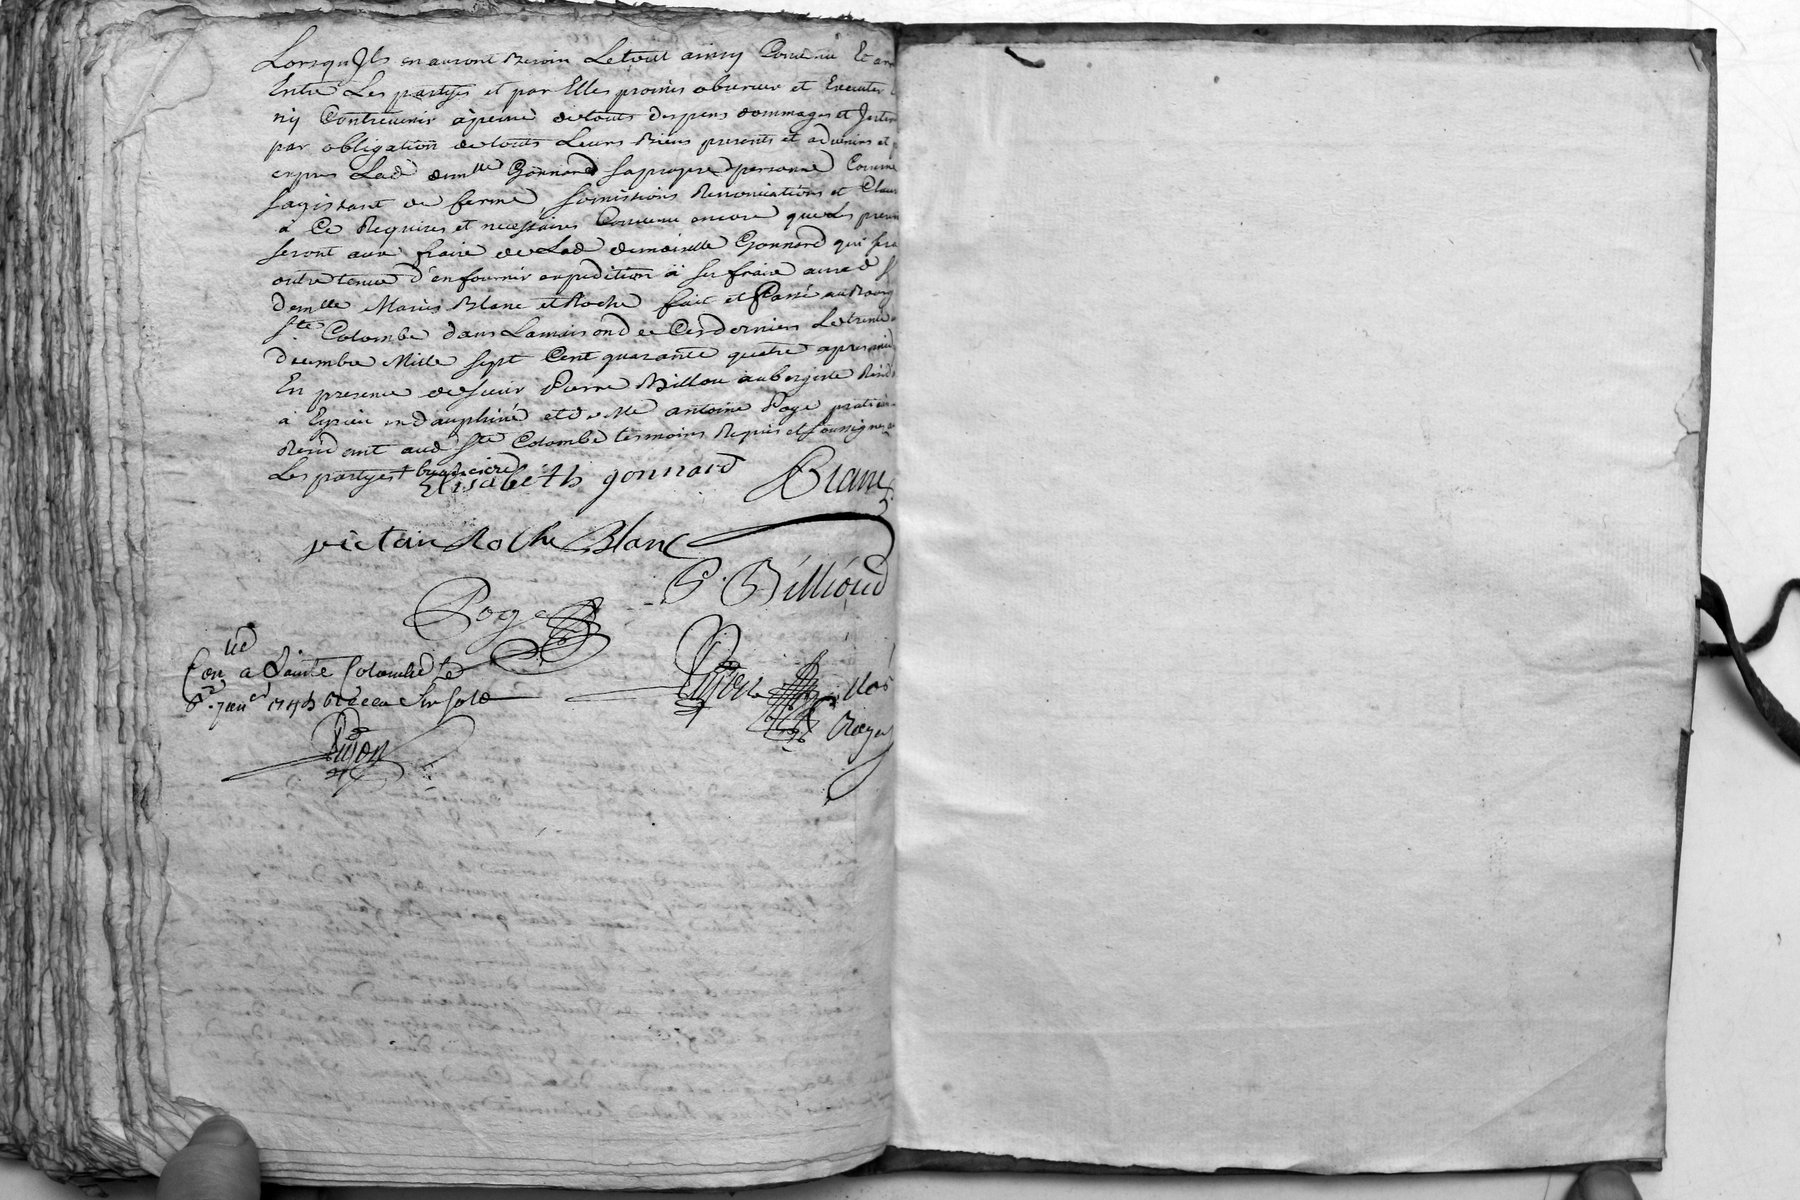 Lorsqu Jls en auront Besoin Letout ainsy Convenu Et
Entre Les partyes et par Elles promis observer et Executer
ny Contrevenir apeine detouts despens dommages et
par obligation detouts Leurs Biens presents et advenirs et
Lad demlle Gonnard sapropre personne Comme
sagissant de ferme, somissions Renonciations et
à Ce Requises et necessaires Convenu encore que Les
seront aux fraix de Lad demoiselle Gonnard qui sera
outre tenue d'en fournir expedition à ses fraix
demlle Mariés Blanc et Roche fait et Passé au Bourg
Ste Colombe dans Lamaison de Ces derniers Le trente
decembre Mille sept Cent quarante quatre apres midy
En presence de sieur Pierre Billou aubergiste
à Eyzieu en dauphiné et de Me antoine Poge praticien
Resident aud Ste Colombe tesmoins Requis et soussignes
Les partyes
Elisabeth gonnard Blanc
victoir Roche Blanc
P. Billioud
Poge
Pujon Nore
Royal
Conlle a Sainte Colombe Le
janer 1745 Receu
Pujon